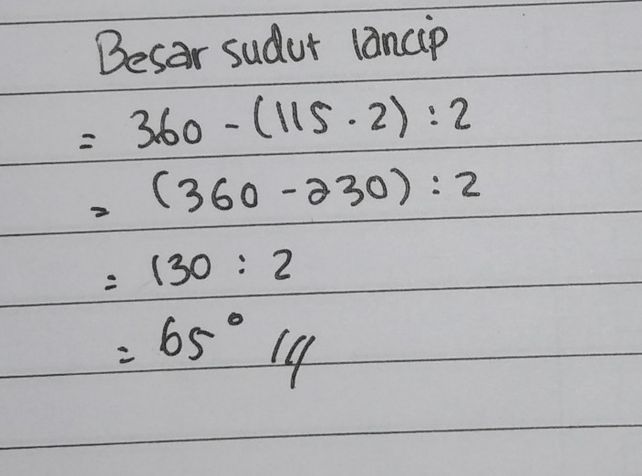 Besar sudut lancip
= 360 - (115 . 2) : 2
= (360 - 230) : 2
= 130 : 2
= 65° //